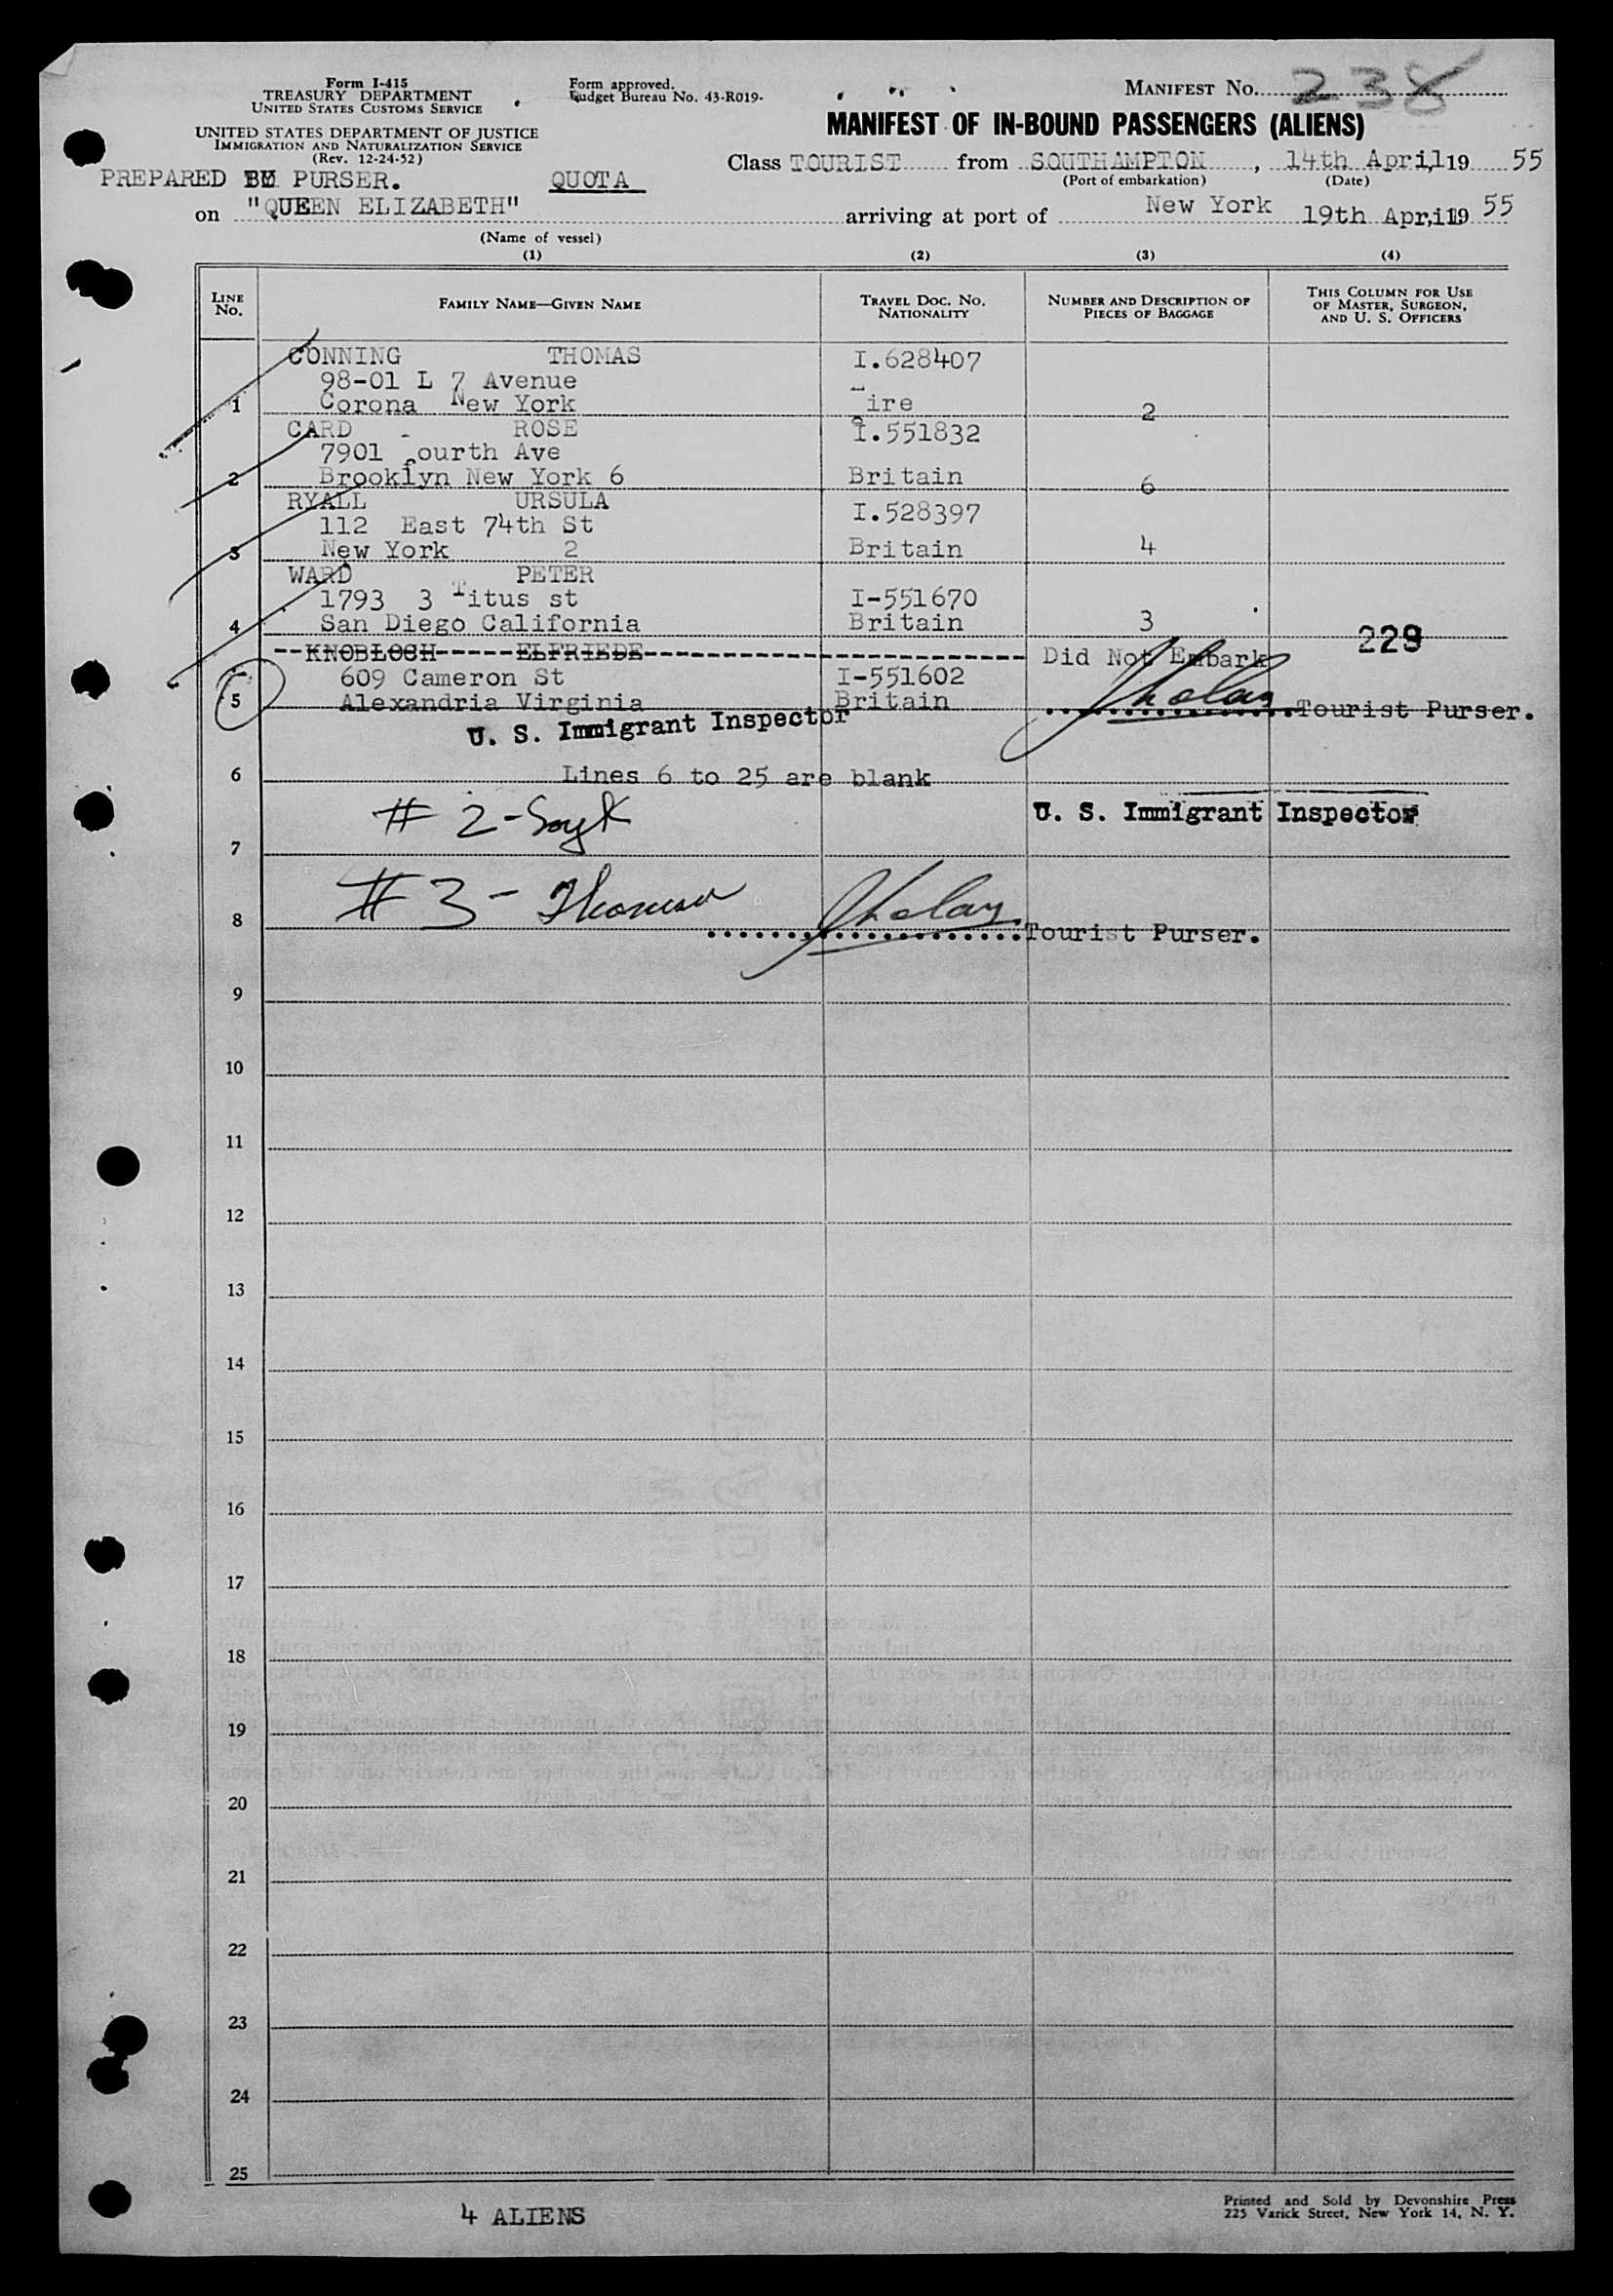 Form I-415
TREASURY DEPARTMENT
UNITED STATES CUSTOMS SERVICE
UNITED STATES DEPARTMENT OF JUSTICE
IMMIGRATION AND NATURALIZATION SERVICE
(Rev. 12-24-52)
Form approved.
Budget Bureau No. 43-R019-
MANIFEST NO. 238
MANIFEST OF IN-BOUND PASSENGERS (ALIENS)
Class TOURIST from SOUTHAMPTON, 14th April, 19 55
(Port of embarkation) (Date)
PREPARED BY PURSER. QUOTA
on "QUEEN ELIZABETH" arriving at port of New York 19th April, 19 55
(Name of vessel)
(1) (2) (3) (4)
LINE NO. FAMILY NAME—GIVEN NAME TRAVEL DOC. NO. NATIONALITY NUMBER AND DESCRIPTION OF PIECES OF BAGGAGE THIS COLUMN FOR USE OF MASTER, SURGEON, AND U. S. OFFICERS
CONNING THOMAS I.628407
98-01 L 7 Avenue
1 Corona New York Eire 2
CARD - ROSE I.551832
7901 fourth Ave
2 Brooklyn New York 6 Britain 6
RYALL URSULA I.528397
112 East 74th St
3 New York 2 Britain 4
WARD PETER
1793 3 Titus st I-551670
4 San Diego California Britain 3
229
--KNOBLOCH-----ELFRIEDE-------------------------- Did Not Embark
609 Cameron St I-551602
5 Alexandria Virginia Britain Tourist Purser.
U. S. Immigrant Inspector
6 Lines 6 to 25 are blank
U. S. Immigrant Inspector
# 2-
7
# 3-
8 Tourist Purser.
9
10
11
12
13
14
15
16
17
18
19
20
21
22
23
24
25
4 ALIENS
Printed and Sold by Devonshire Press
225 Varick Street, New York 14, N. Y.